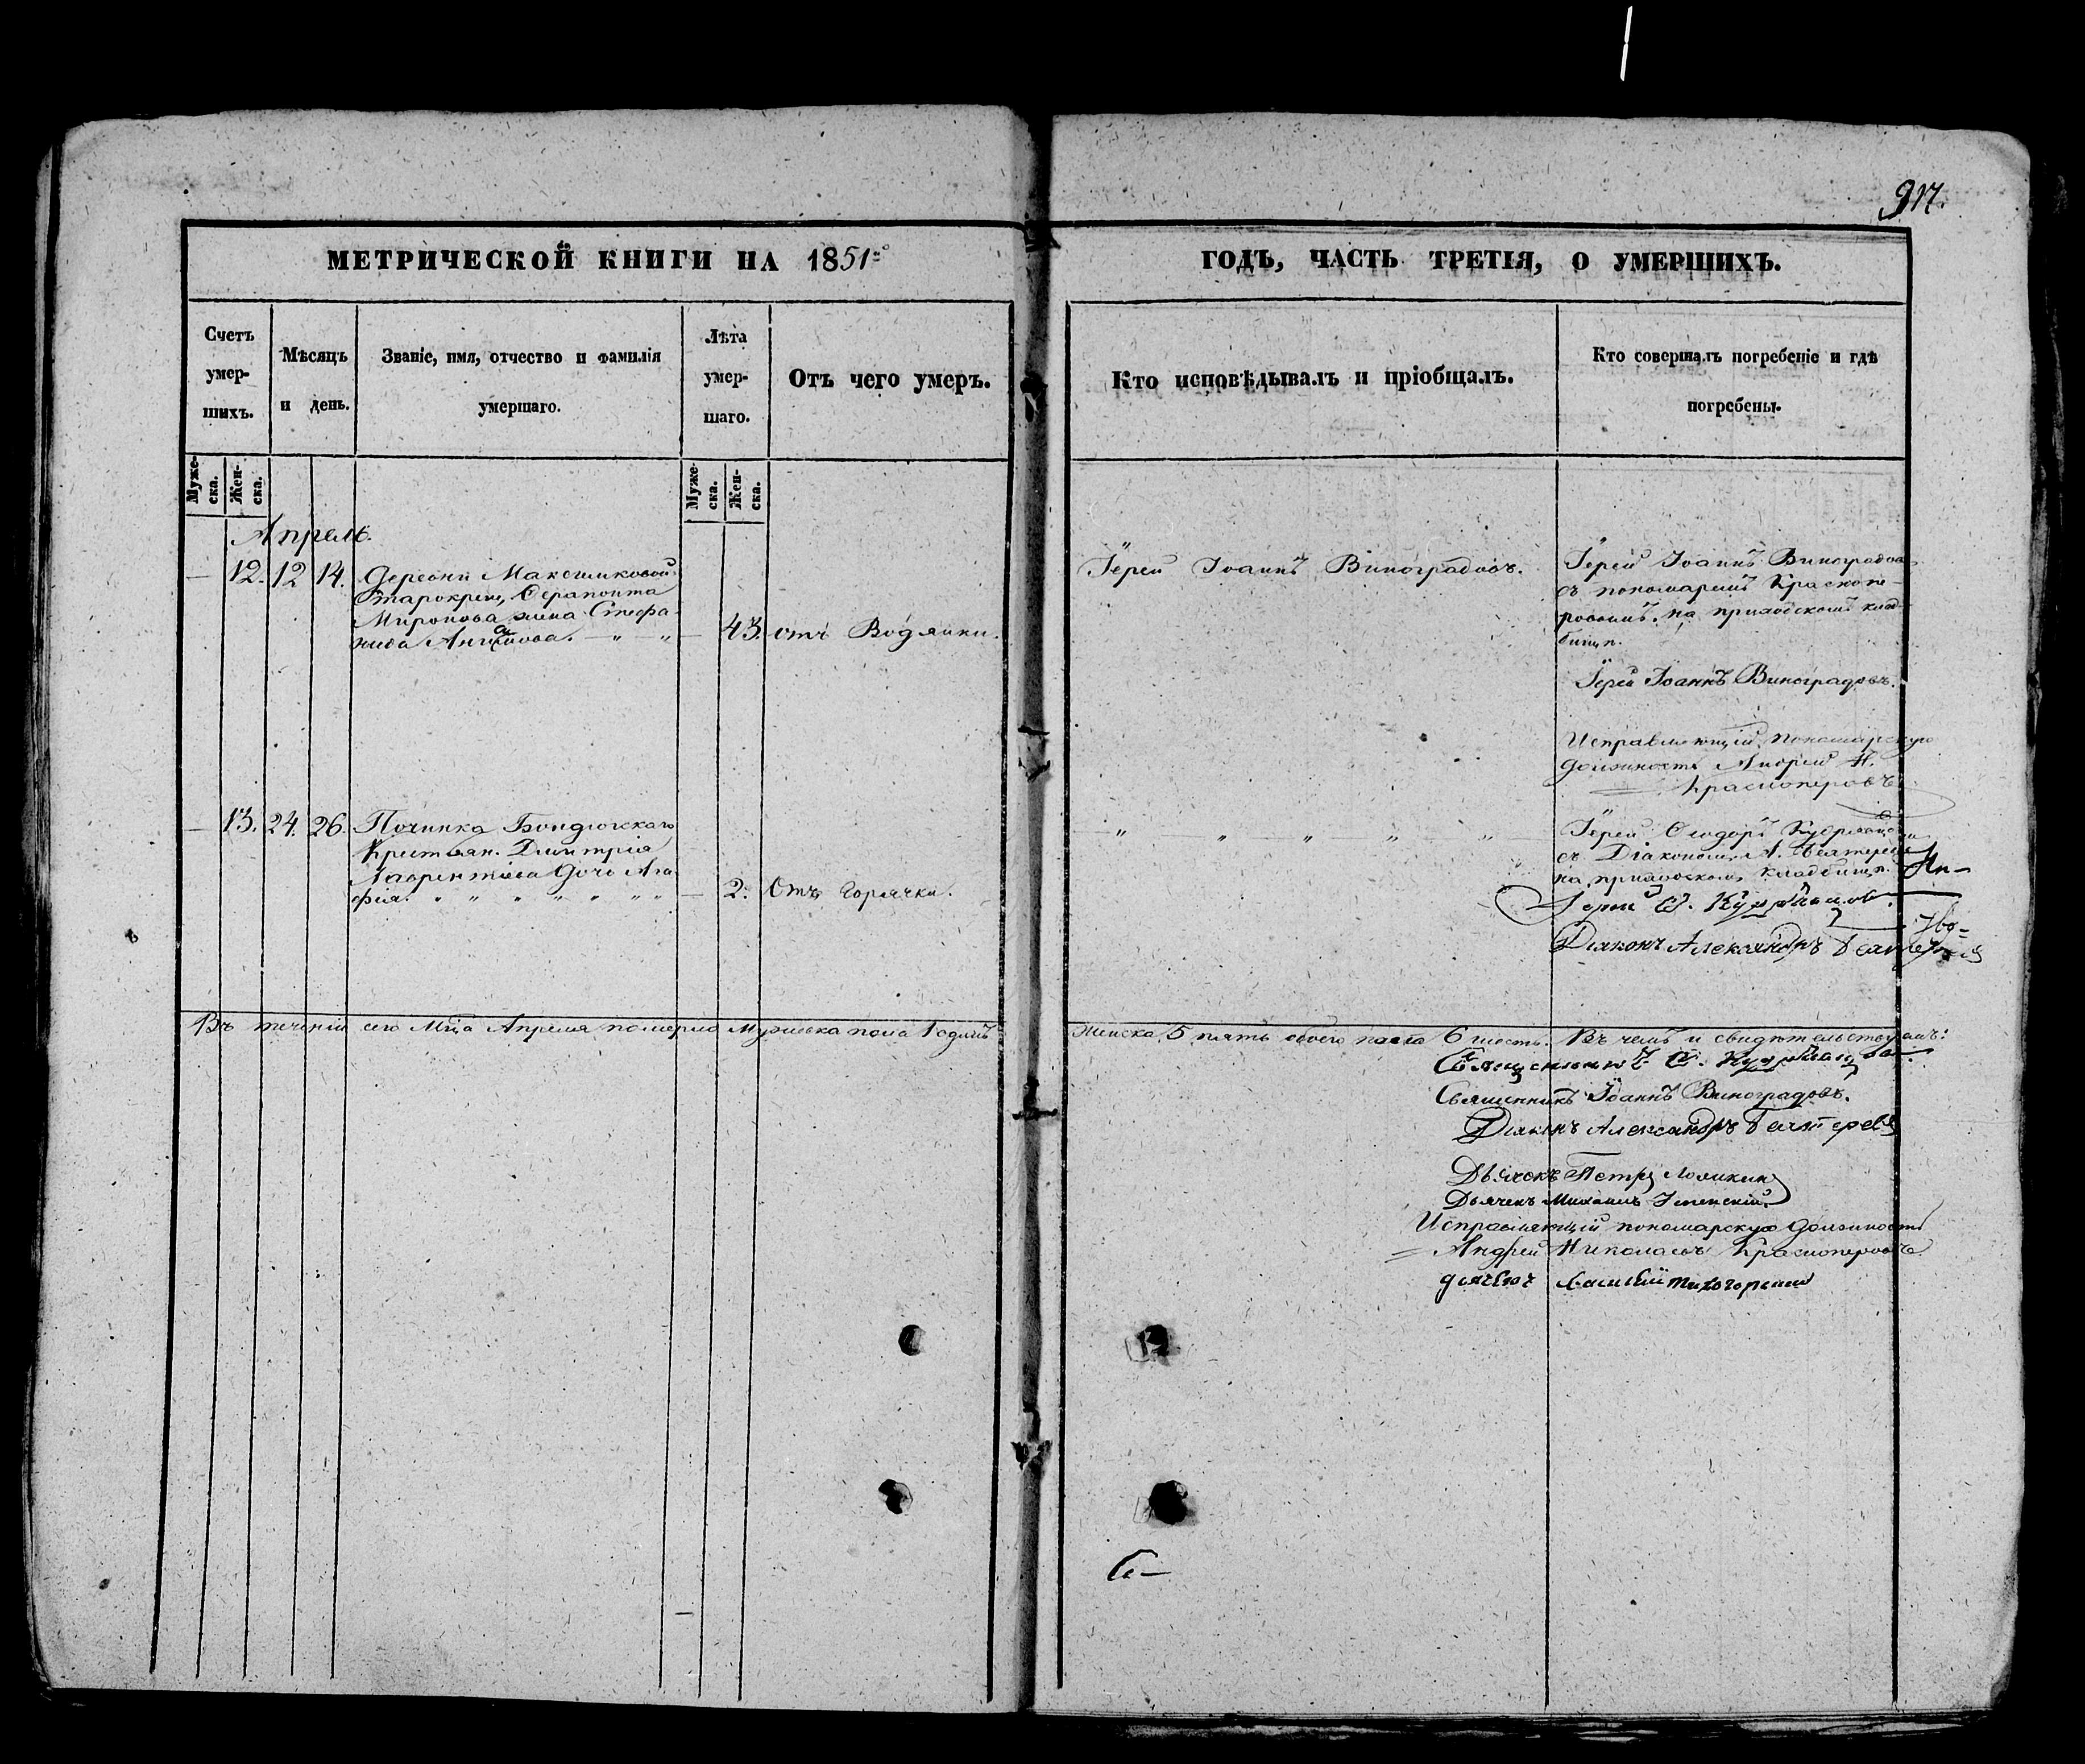 917.
МЕТРИЧЕСКОЙ КНИГИ НА 1851:º
ГОДЪ, ЧАСТЬ ТРЕТІЯ, О УМЕРШИХЪ.
Счетъ умер-шихъ.
Мѣсяцъ и день.
Званіе, имя, отчество и фамилія умершаго.
Лѣта умер-шаго.
Отъ чего умеръ.
Кто исповѣдывалъ и пріобщалъ.
Кто совершалъ погребеніе и гдѣ погребены.
Муже-ска.
Жен-ска.
Муже-ска.
Жен-ска.
Апрель.
— 12. 12 14.
Деревни Максимковой
Старокрещ. Ферапонта
Миронова жена Стефа-
нида
— 43. отъ Водянки.
Іерей Іоаннъ Виноградовъ.
Іерей Іоаннъ Виноградовъ
съ пономаремъ Краснопе-
ровымъ, на приходскомъ клад-
бищѣ.
Іерей Іоаннъ Виноградовъ.
Исправляющій Пономарскую
должность Андрей Н.
Красноперовъ
— 13. 24. 26.
Починка Бондюжскаго
Крестьян. Димитрія
Лаврентьева дочь Ага-
фія. " " " " " " "
— 2. Отъ Горячки.
— " " " " "
Іерей Ѳеодоръ
съ Діакономъ А.
на приходскомъ кладбищѣ.
Іерей Ѳ.
Діаконъ Александръ
Въ теченіи сего Мца Апреля померло Мужеска пола 1 одинъ
Женска 5 пять обоего пола 6 шесть. Въ чемъ и свидѣтельствуемъ:
Священникъ Ѳ.
Священникъ Іоаннъ Виноградовъ.
Діаконъ Александръ
Дьячекъ Петръ
Дьячекъ Михаилъ
Исправляющій пономарскую должность
Андрей Николаевъ Красноперовъ
дьячекъ Василій